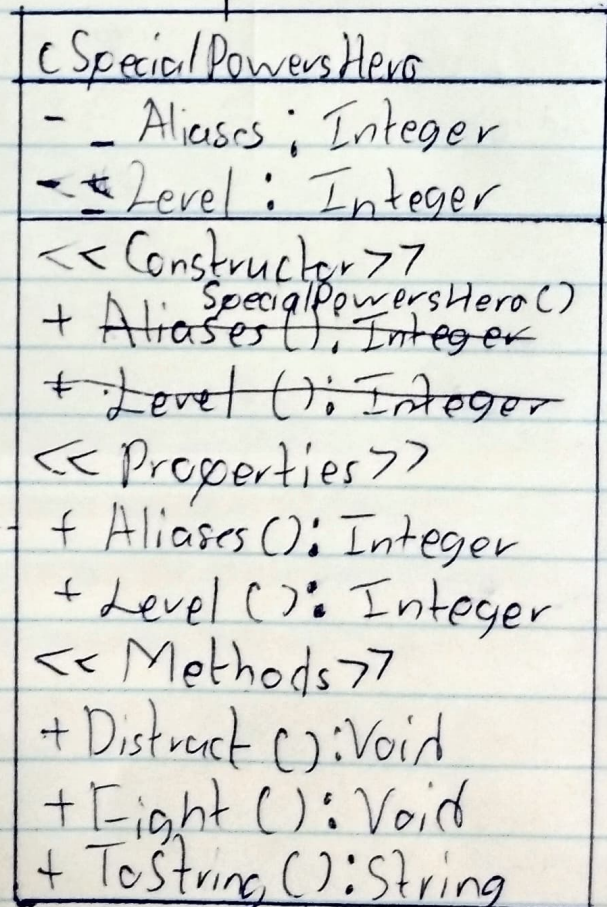 cSpecialPowersHero
- _ Aliases : Integer
- _ Level : Integer
<< Constructor >>
SpecialPowersHero()
+ Aliases (): Integer
+ Level (): Integer
<< Properties >>
+ Aliases (): Integer
+ Level (): Integer
<< Methods >>
+ Distract (): Void
+ Fight (): Void
+ ToString (): String